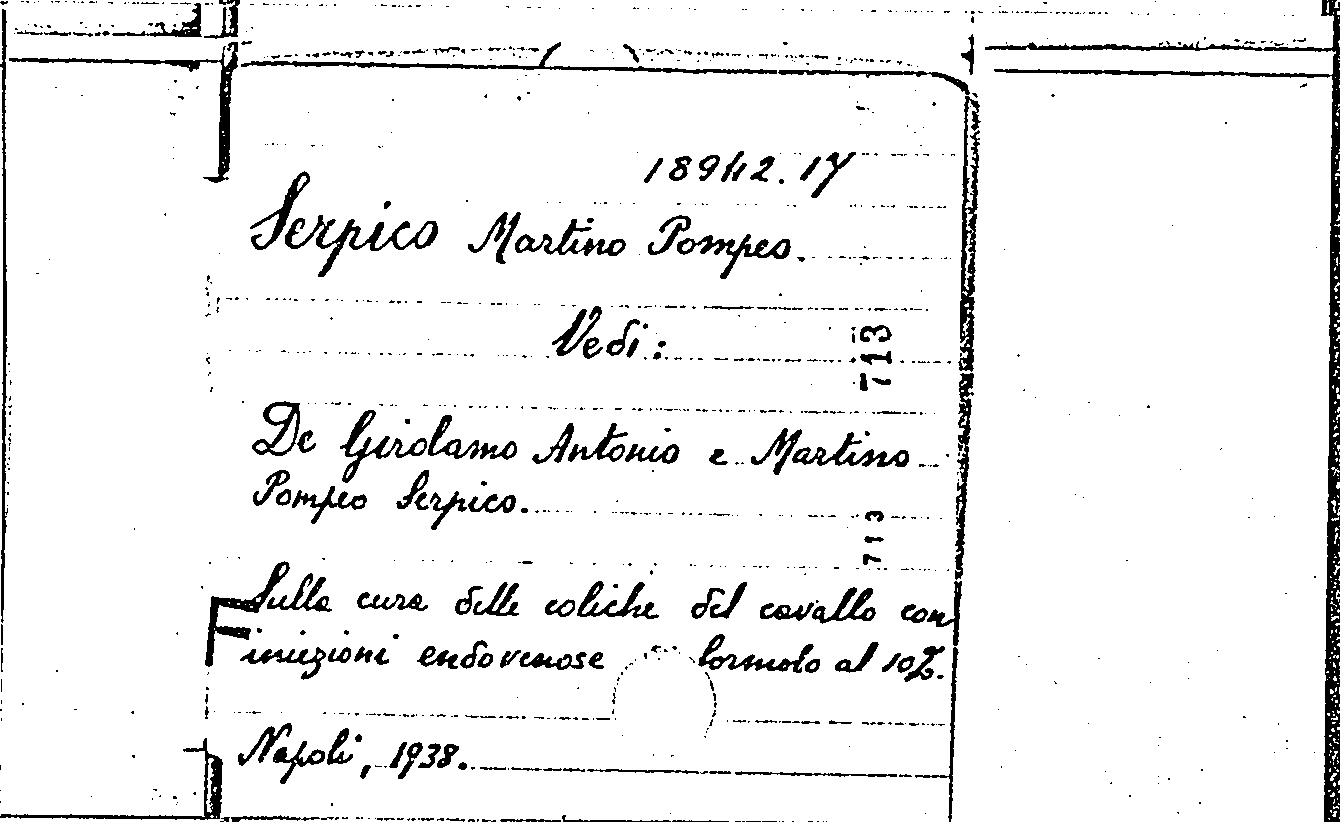 18942.17
Serpico Martino Pompeo.
Vedi:
713
De Girolamo Antonio e Martino
Pompeo Serpico.
713
Sulla cura delle coliche del cavallo con
iniezioni endovenose formolo al 10%.
Napoli, 1938.